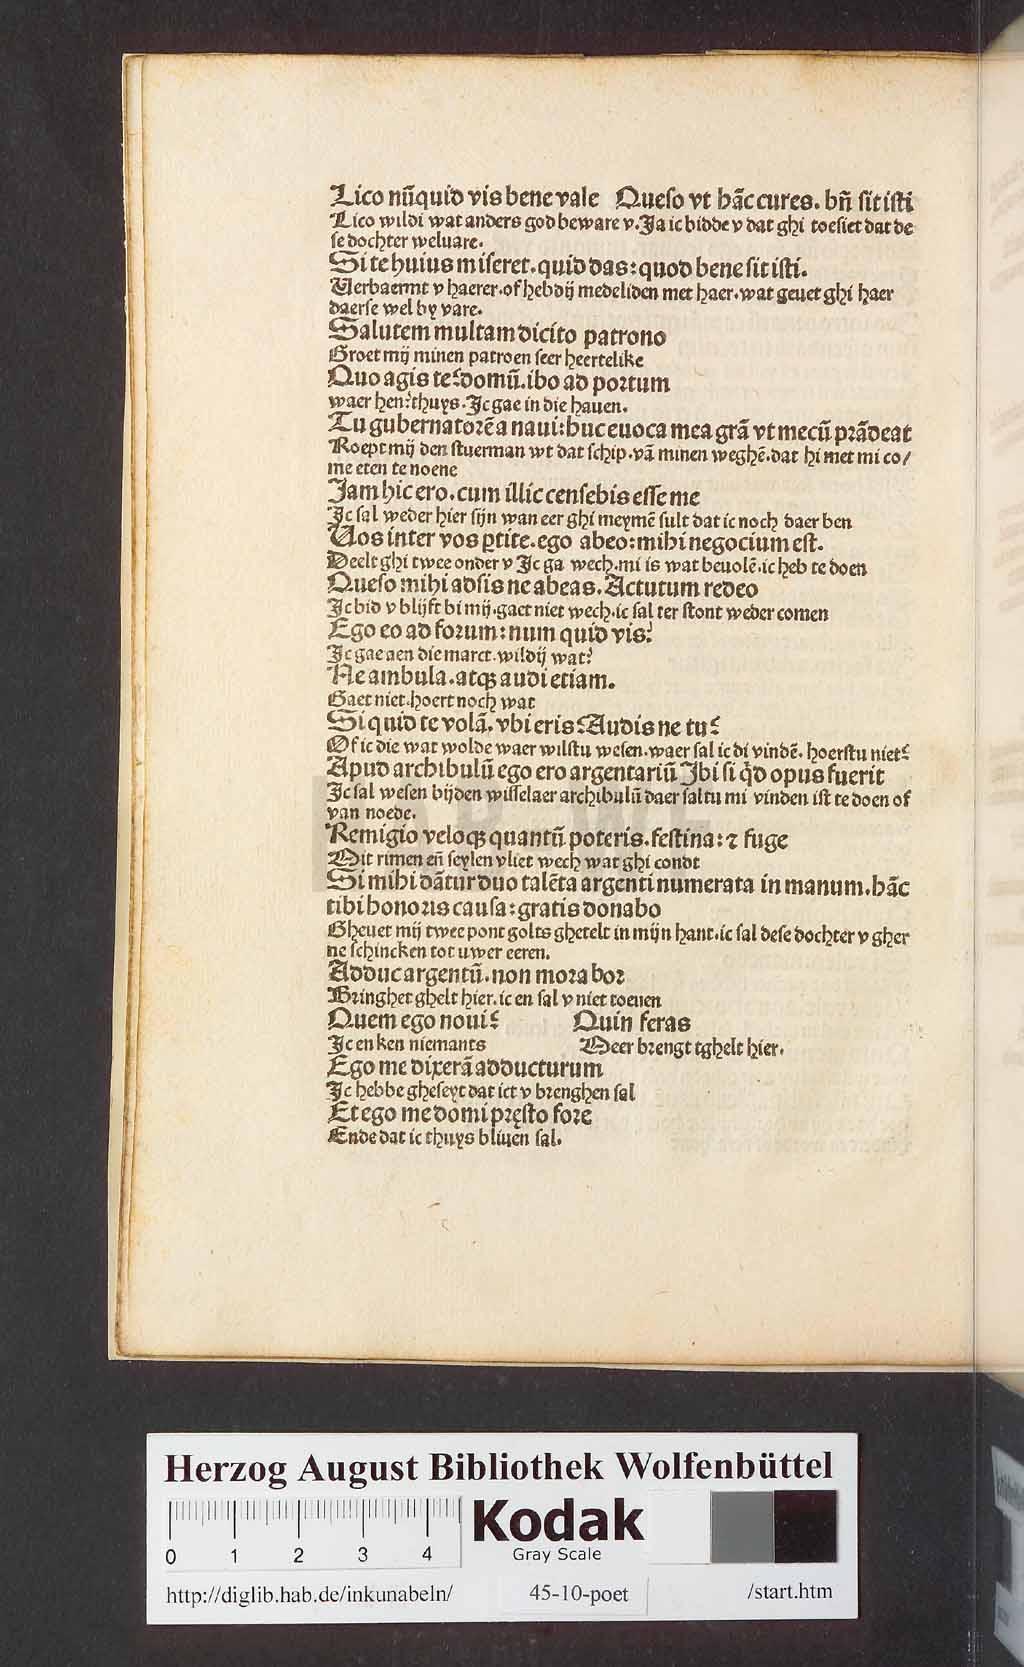 Lico nũquid vis bene vale   Queso vt hãc cures. bñ sit isti
Lico wildi wat anders god beware v. Ja ic bidde v dat ghi toesiet dat de
se dochter weluare.
Si te huius miseret. quid das: quod bene sit isti.
Uerbaermt v haerer. of hebdij medeliden met haer. wat geuet ghi haer
daerse wel by vare.
Salutem multam dicito patrono
Groet mij minen patroen seer heertelike
Quo agis te? domũ. ibo ad portum
waer hen? thuys. Jc gae in die hauen.
Tu gubernatorẽ a naui: huc euoca mea grã vt mecũ prãdeat
Roept mij den stuerman wt dat schip. vã minen weghẽ. dat hi met mi co/
me eten te noene
Jam hic ero. cum illic censebis esse me
Jc sal weder hier sijn wan eer ghi meymẽ sult dat ic noch daer ben
Uos inter vos ꝑtite. ego abeo: mihi negocium est.
Deelt ghi twee onder v Jc ga wech. mi is wat beuolẽ. ic heb te doen
Queso mihi adsis ne abeas. Actutum redeo
Jc bid v blijft bi mij. gaet niet wech. ic sal ter stont weder comen
Ego eo ad forum: num quid vis?
Jc gae aen die marct. wildij wat?
Ne ambula. atqꝫ audi etiam.
Gaet niet. hoert noch wat
Si quid te volã. vbi eris? Audis ne tu?
Of ic die wat wolde waer wilstu wesen. waer sal ic di vindẽ. hoerstu niet?
Apud archibulũ ego ero argentariũ Jbi si qd̓ opus fuerit
Jc sal wesen bijden wisselaer archibulũ daer saltu mi vinden ist te doen of
van noede.
Remigio veloqꝫ quantũ poteris. festina: ⁊ fuge
Dit rimen eñ seylen vliet wech wat ghi condt
Si mihi dãtur duo talẽta argenti numerata in manum. hãc
tibi honoris causa: gratis donabo
Gheuet mij twee pont golts ghetelt in mijn hant. ic sal dese dochter v gher
ne schincken tot uwer eeren.
Adduc argentũ. non mora bor
Bringhet ghelt hier. ic en sal v niet toeuen
Quem ego noui?   Quin feras
Jc en ken niemants   Deer brengt tghelt hier.
Ego me dixerã adducturum
Jc hebbe gheseyt dat ict v brenghen sal
Et ego me domi pręsto fore
Ende dat ic thuys bliuen sal.
HAB - WF
Herzog August Bibliothek Wolfenbüttel
0 1 2 3 4
Kodak
Gray Scale
http://diglib.hab.de/inkunabeln/   45-10-poet   /start.htm